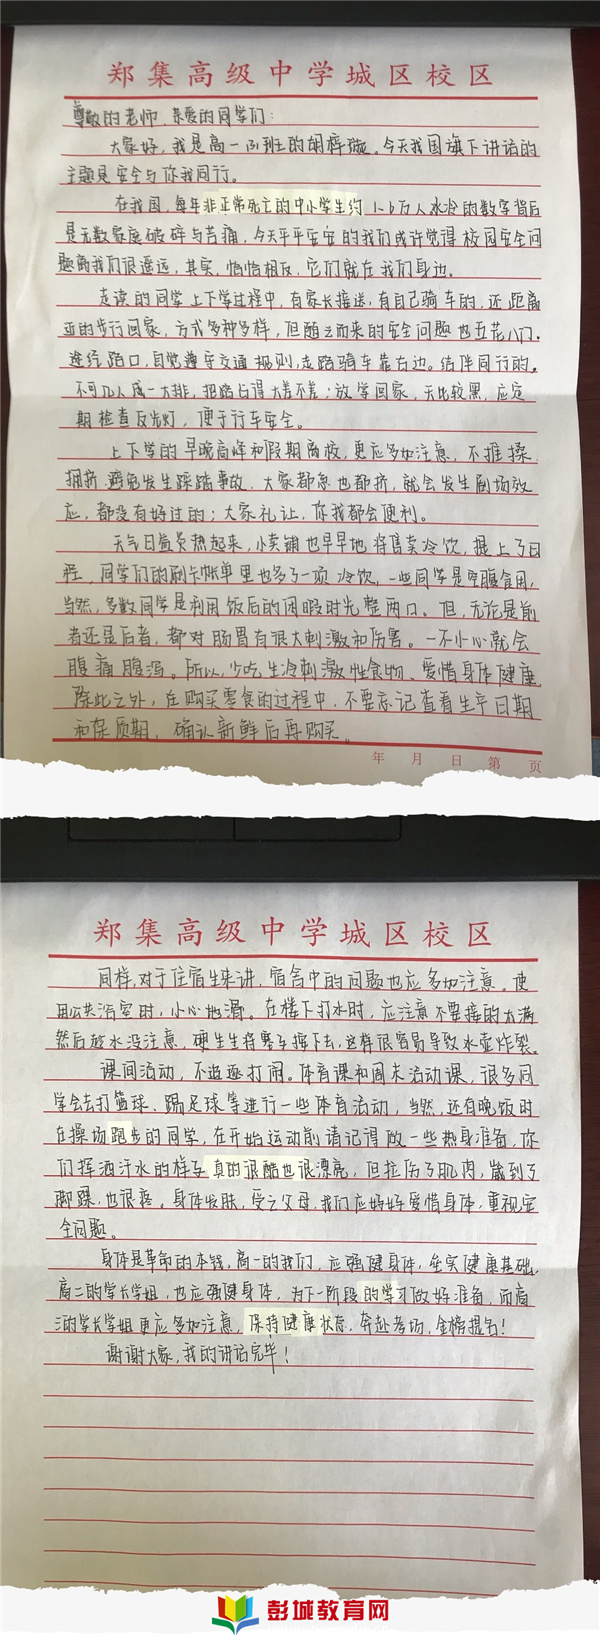 郑集高级中学城区校区
尊敬的老师、亲爱的同学们:
大家好,我是高一 班的胡梓璇。今天我国旗下讲话的
主题是安全与你我同行。
在我国,每年非正常死亡的中小学生约1.6万人冰冷的数字背后
是无数家庭破碎与苦痛,今天平平安安的我们或许觉得校园安全问
题离我们很遥远,其实,恰恰相反,它们就在我们身边。
走读的同学上下学过程中,有家长接送,有自己骑车的,还距离
近的步行回家,方式多种多样,但随之而来的安全问题也五花八门。
途经路口,自觉遵守交通规则,走路骑车靠右边。结伴同行的。
不可几人成一大排,把路占得大差不差;放学回家,天比较黑,应定
期检查反光灯,便于行车安全。
上下学的早晚高峰和假期离校,更应多加注意,不推搡
拥挤,避免发生踩踏事故,大家都急也都挤,就会发生剧场效
应,都没有好过的;大家礼让,你我都会便利。
天气日益炎热起来,小卖铺也早早地将售卖冷饮,提上了日
程,同学们的刷卡帐单里也多了一项冷饮,一些同学是空腹食用,
当然,多数同学是利用饭后的闲暇时光整两口。但,无论是前
者还是后者,都对肠胃有很大刺激和伤害。一不小心就会
腹痛腹泻。所以,少吃生冷刺激性食物、爱惜身体健康,
除此之外,在购买零食的过程中,不要忘记查看生产日期
和保质期,确认新鲜后再购买。
年 月 日 第 页
郑集高级中学城区校区
同样,对于住宿生来讲,宿舍中的问题也应多加注意。使
用公共浴室时,小心地滑。在楼下打水时,应注意不要接的太满
然后放水没注意,硬生生将塞子按下去,这样很容易导致水壶炸裂。
课间活动,不追逐打闹。体育课和周末活动课,很多同
学会去打篮球、踢足球等进行一些体育活动,当然,还有晚饭时
在操场跑步的同学,在开始运动前请记得做一些热身准备,你
们挥洒汗水的样子真的很酷也很漂亮,但拉伤了肌肉,崴到了
脚踝,也很疼。身体发肤,受之父母,我们应好好爱惜身体,重视安
全问题。
身体是革命的本钱,高一的我们,应强健身体,坐实健康基础,
高二的学长学姐,也应强健身体,为下一阶段的学习做好准备,而高
三的学长学姐更应多加注意,保持健康状态,奔赴考场,金榜提名!
谢谢大家,我的讲话完毕!
彭城教育网